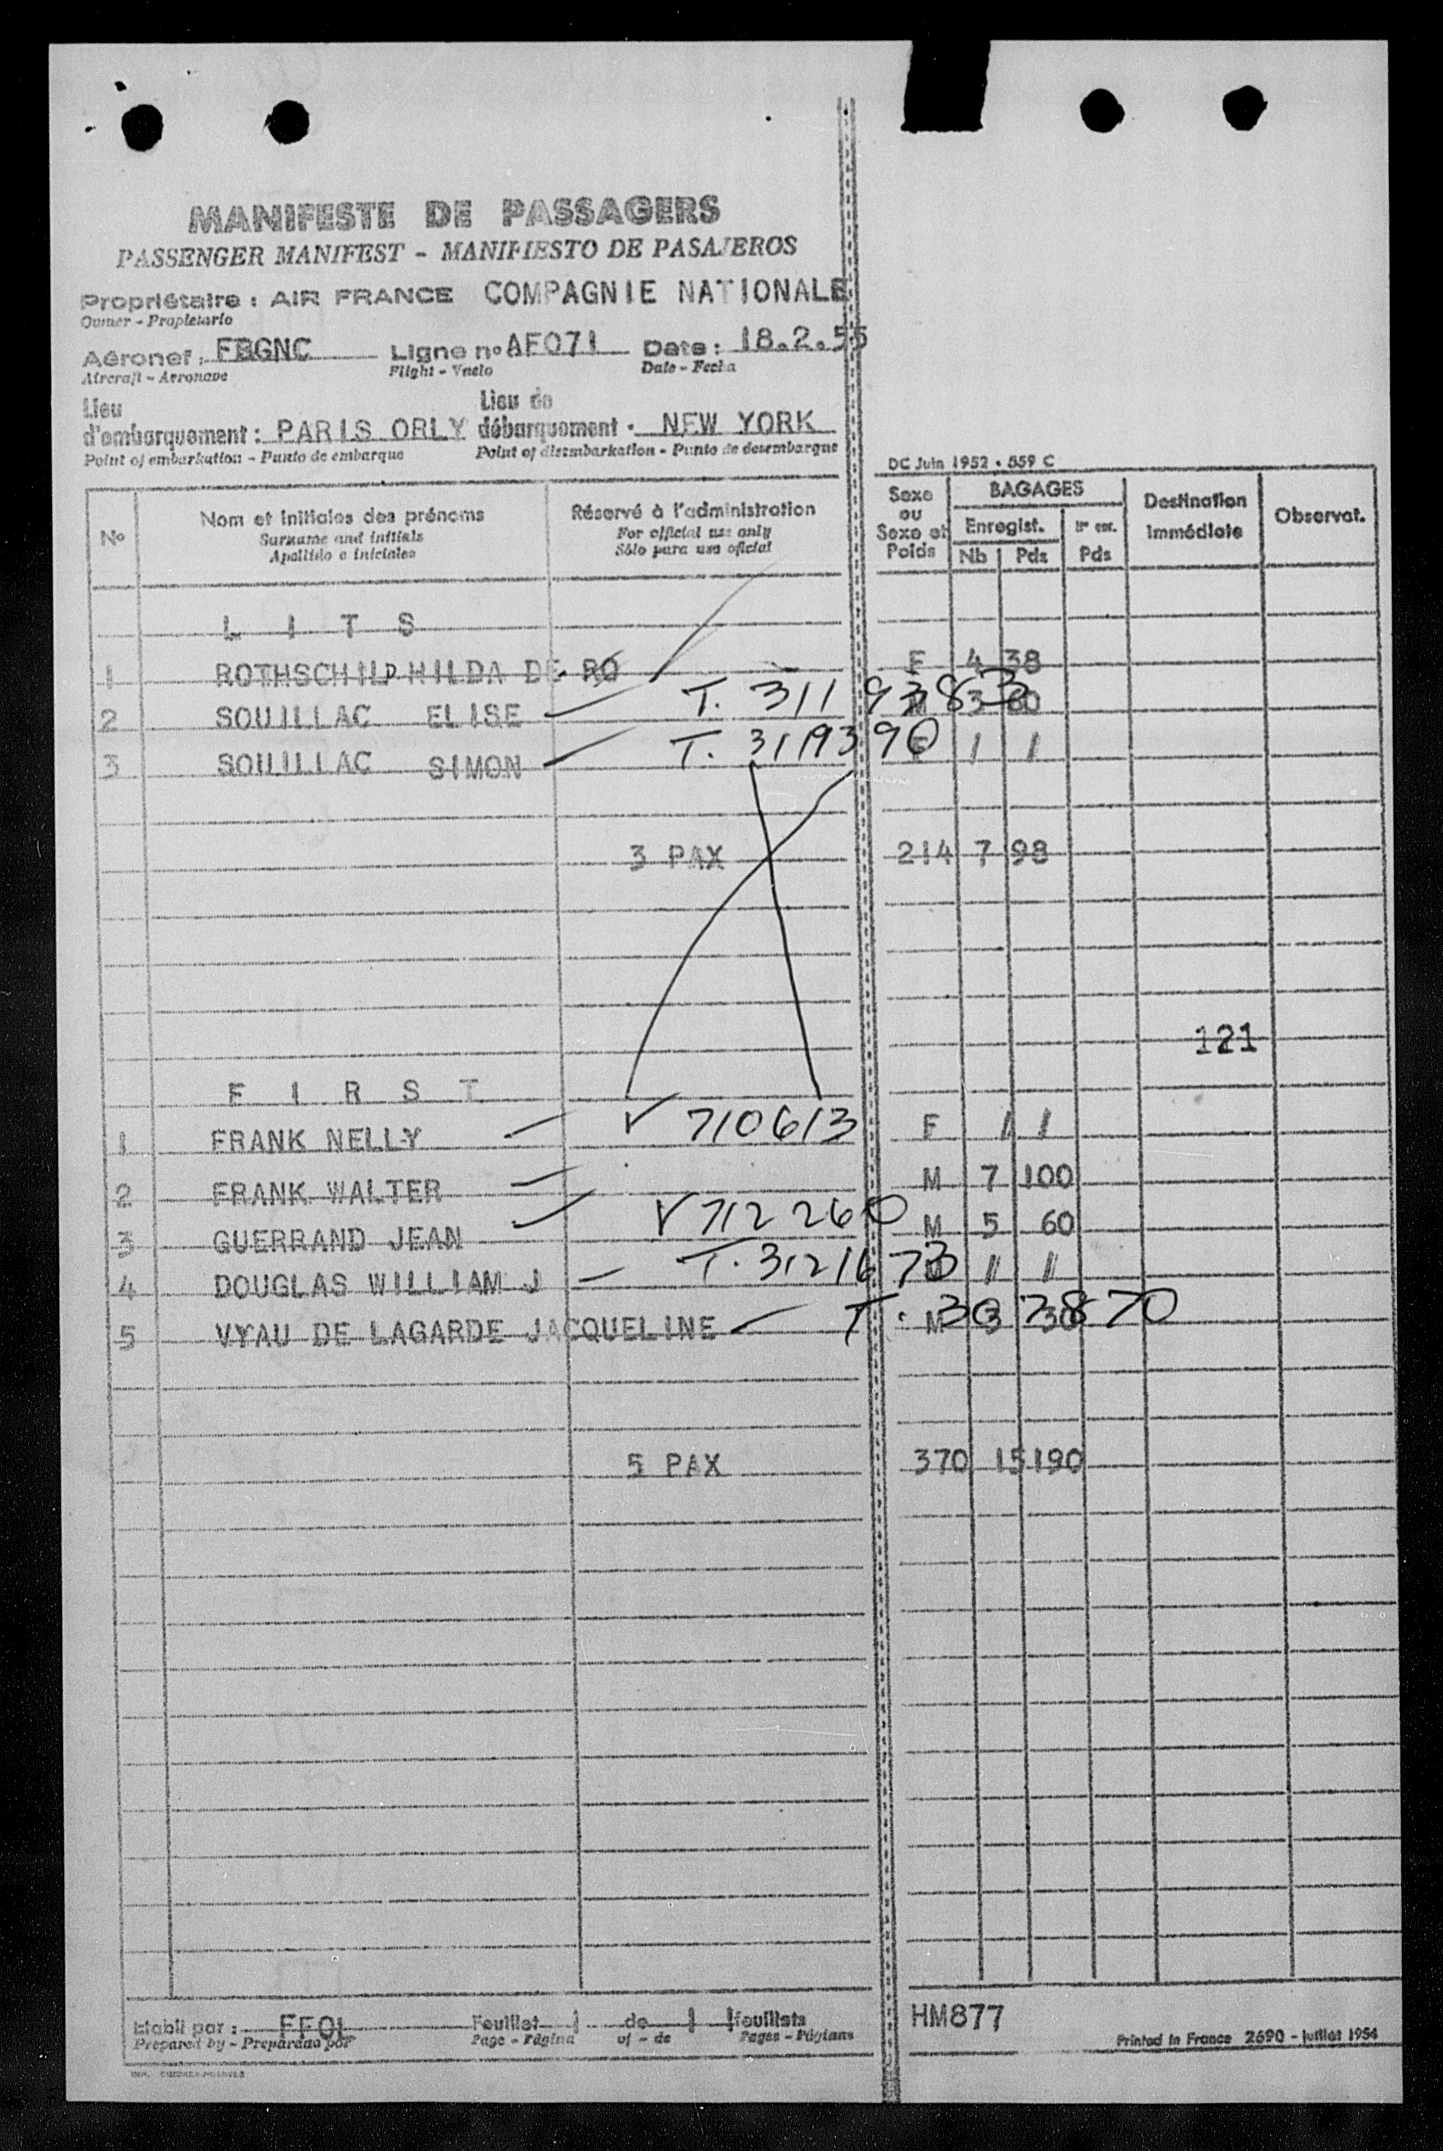 MANIFESTE DE PASSAGERS
PASSENGER MANIFEST - MANIFIESTO DE PASAJEROS
Propriétaire : AIR FRANCE COMPAGNIE NATIONALE
Owner - Propietario
Aéronef : FBGNC Ligne n° AF071 Date : 18.2.55
Aircraft - Aeronave Flight - Vuelo Date - Fecha
Lieu d'embarquement : PARIS ORLY Lieu de débarquement : NEW YORK
Point of embarkation - Punto de embarque Point of disembarkation - Punto de desembarque
DC Juin 1952 - 559 C
N° Nom et initiales des prénoms Réservé à l'administration Sexe ou Sexe et Poids BAGAGES Destination immédiate Observat.
Surname and initials For official use only Enregist.
Apellido e iniciales Sólo para uso oficial Nb Pds Pds
L I T S
1 ROTHSCHILD HILDA DE RO F 4 38
2 SOUILLAC ELISE T. 3119383 3 60
3 SOUILLAC SIMON T. 319390 / /
3 PAX 214 7 98
121
F I R S T
1 FRANK NELLY 710613 F // /
2 FRANK WALTER M 7 100
3 GUERRAND JEAN V 712260 M 5 60
4 DOUGLAS WILLIAM J T. 3121673 // //
5 VYAU DE LAGARDE JACQUELINE T. 307870 M 3 30
5 PAX 370 15 190
Etabli par : FFOL Feuillet 1 de 1 feuillets HM877
Prepared by - Preparado por Page - Página of - de Pages - Páginas Printed in France 2690 - juillet 1954